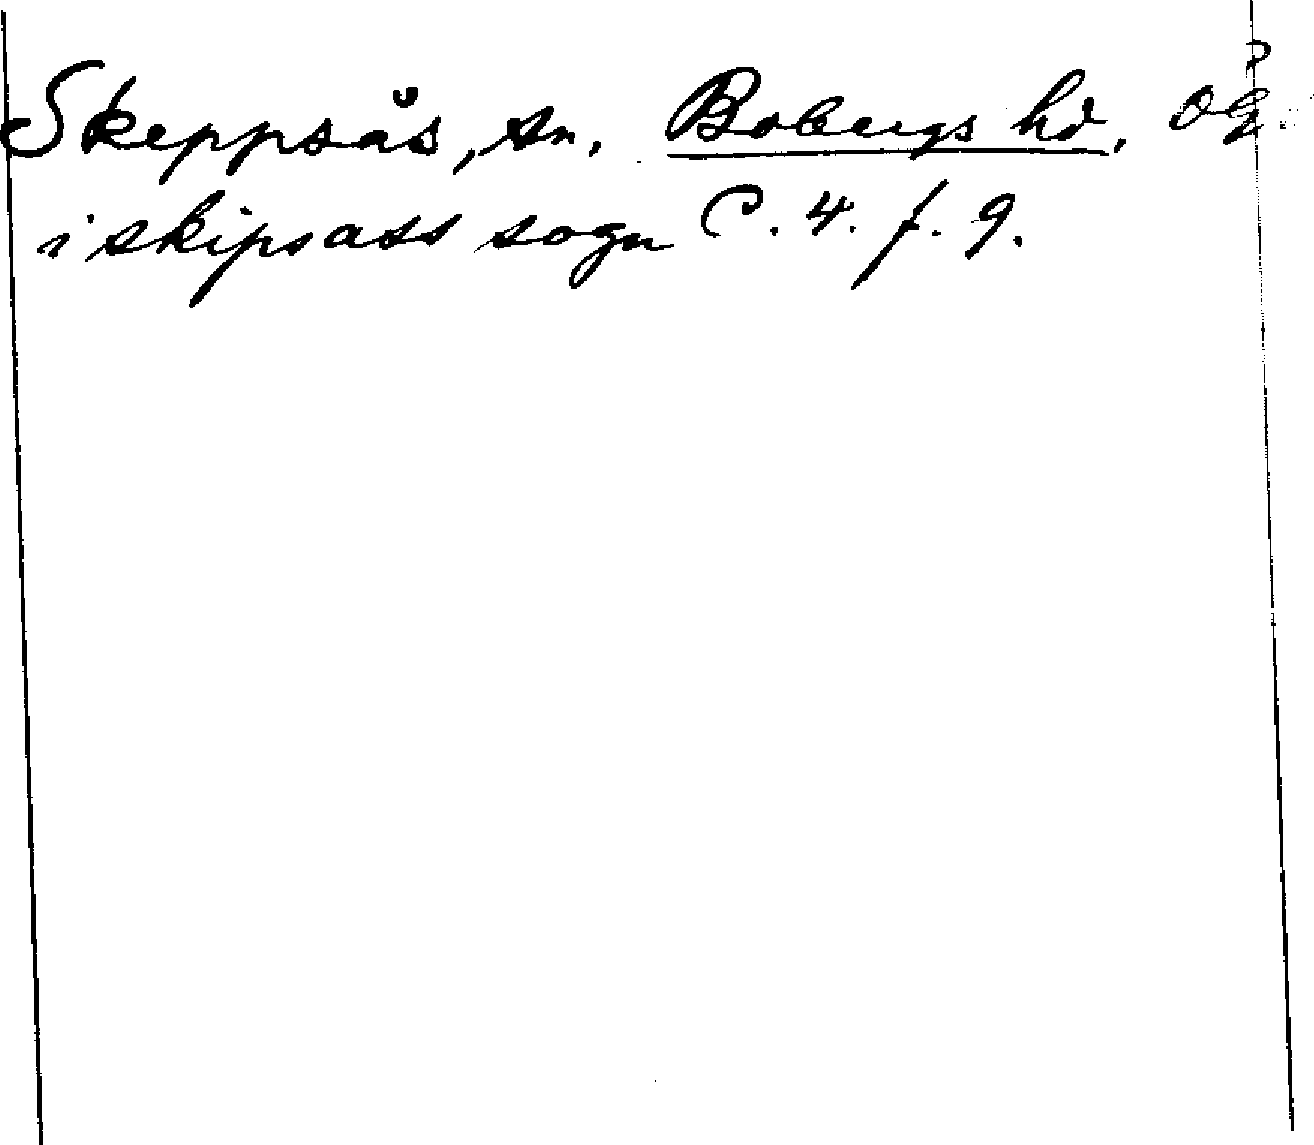 Skeppsås, sn. Bobergs hd. Ög.
i skipsass sogn C. 4. f. 9.